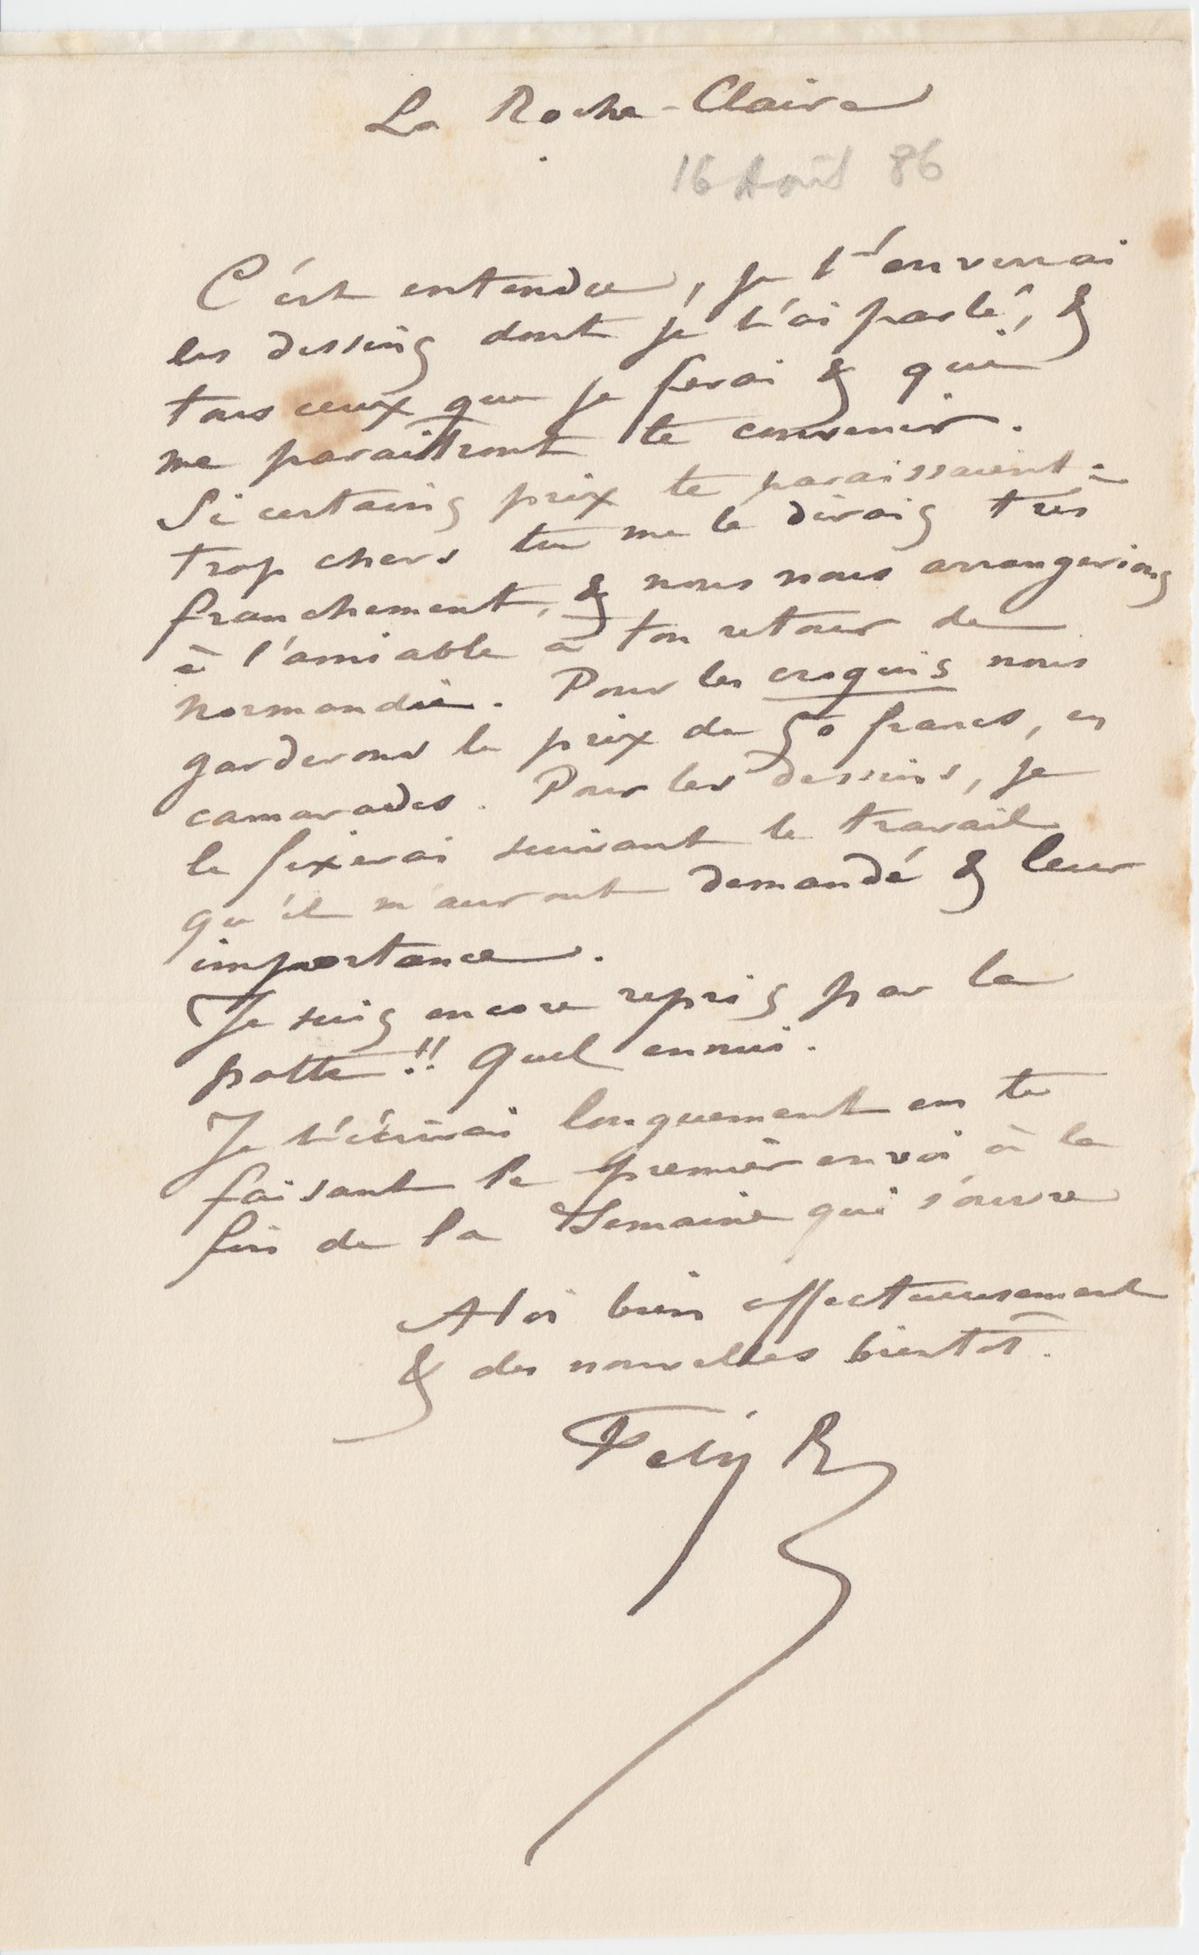 La Roche-Claire
16 Août 86
C'est entendu, je t'enverrai
les dessins dont je t'ai parlé, &
tous ceux que je ferai & qui
me paraitront te convenir.
Si certains prix te paraissaient -
trop chers tu me le dirais très
franchement, & nous nous arrangerions
à l'amiable à ton retour de
Normandie. Pour les croquis nous
garderons le prix de 50 francs, en
camarades. Pour les dessins, je
le fixerai suivant le travail
qu'il m'auront demandé & leur
importance.
Je suis encore repris par la
patte!! Quel ennui.
Je t'écrirai longuement en te
faisant le premier envoi à la
fin de la Semaine qui s'ouvre
A toi bien affectueusement
& des nouvelles bientôt.
Fély R